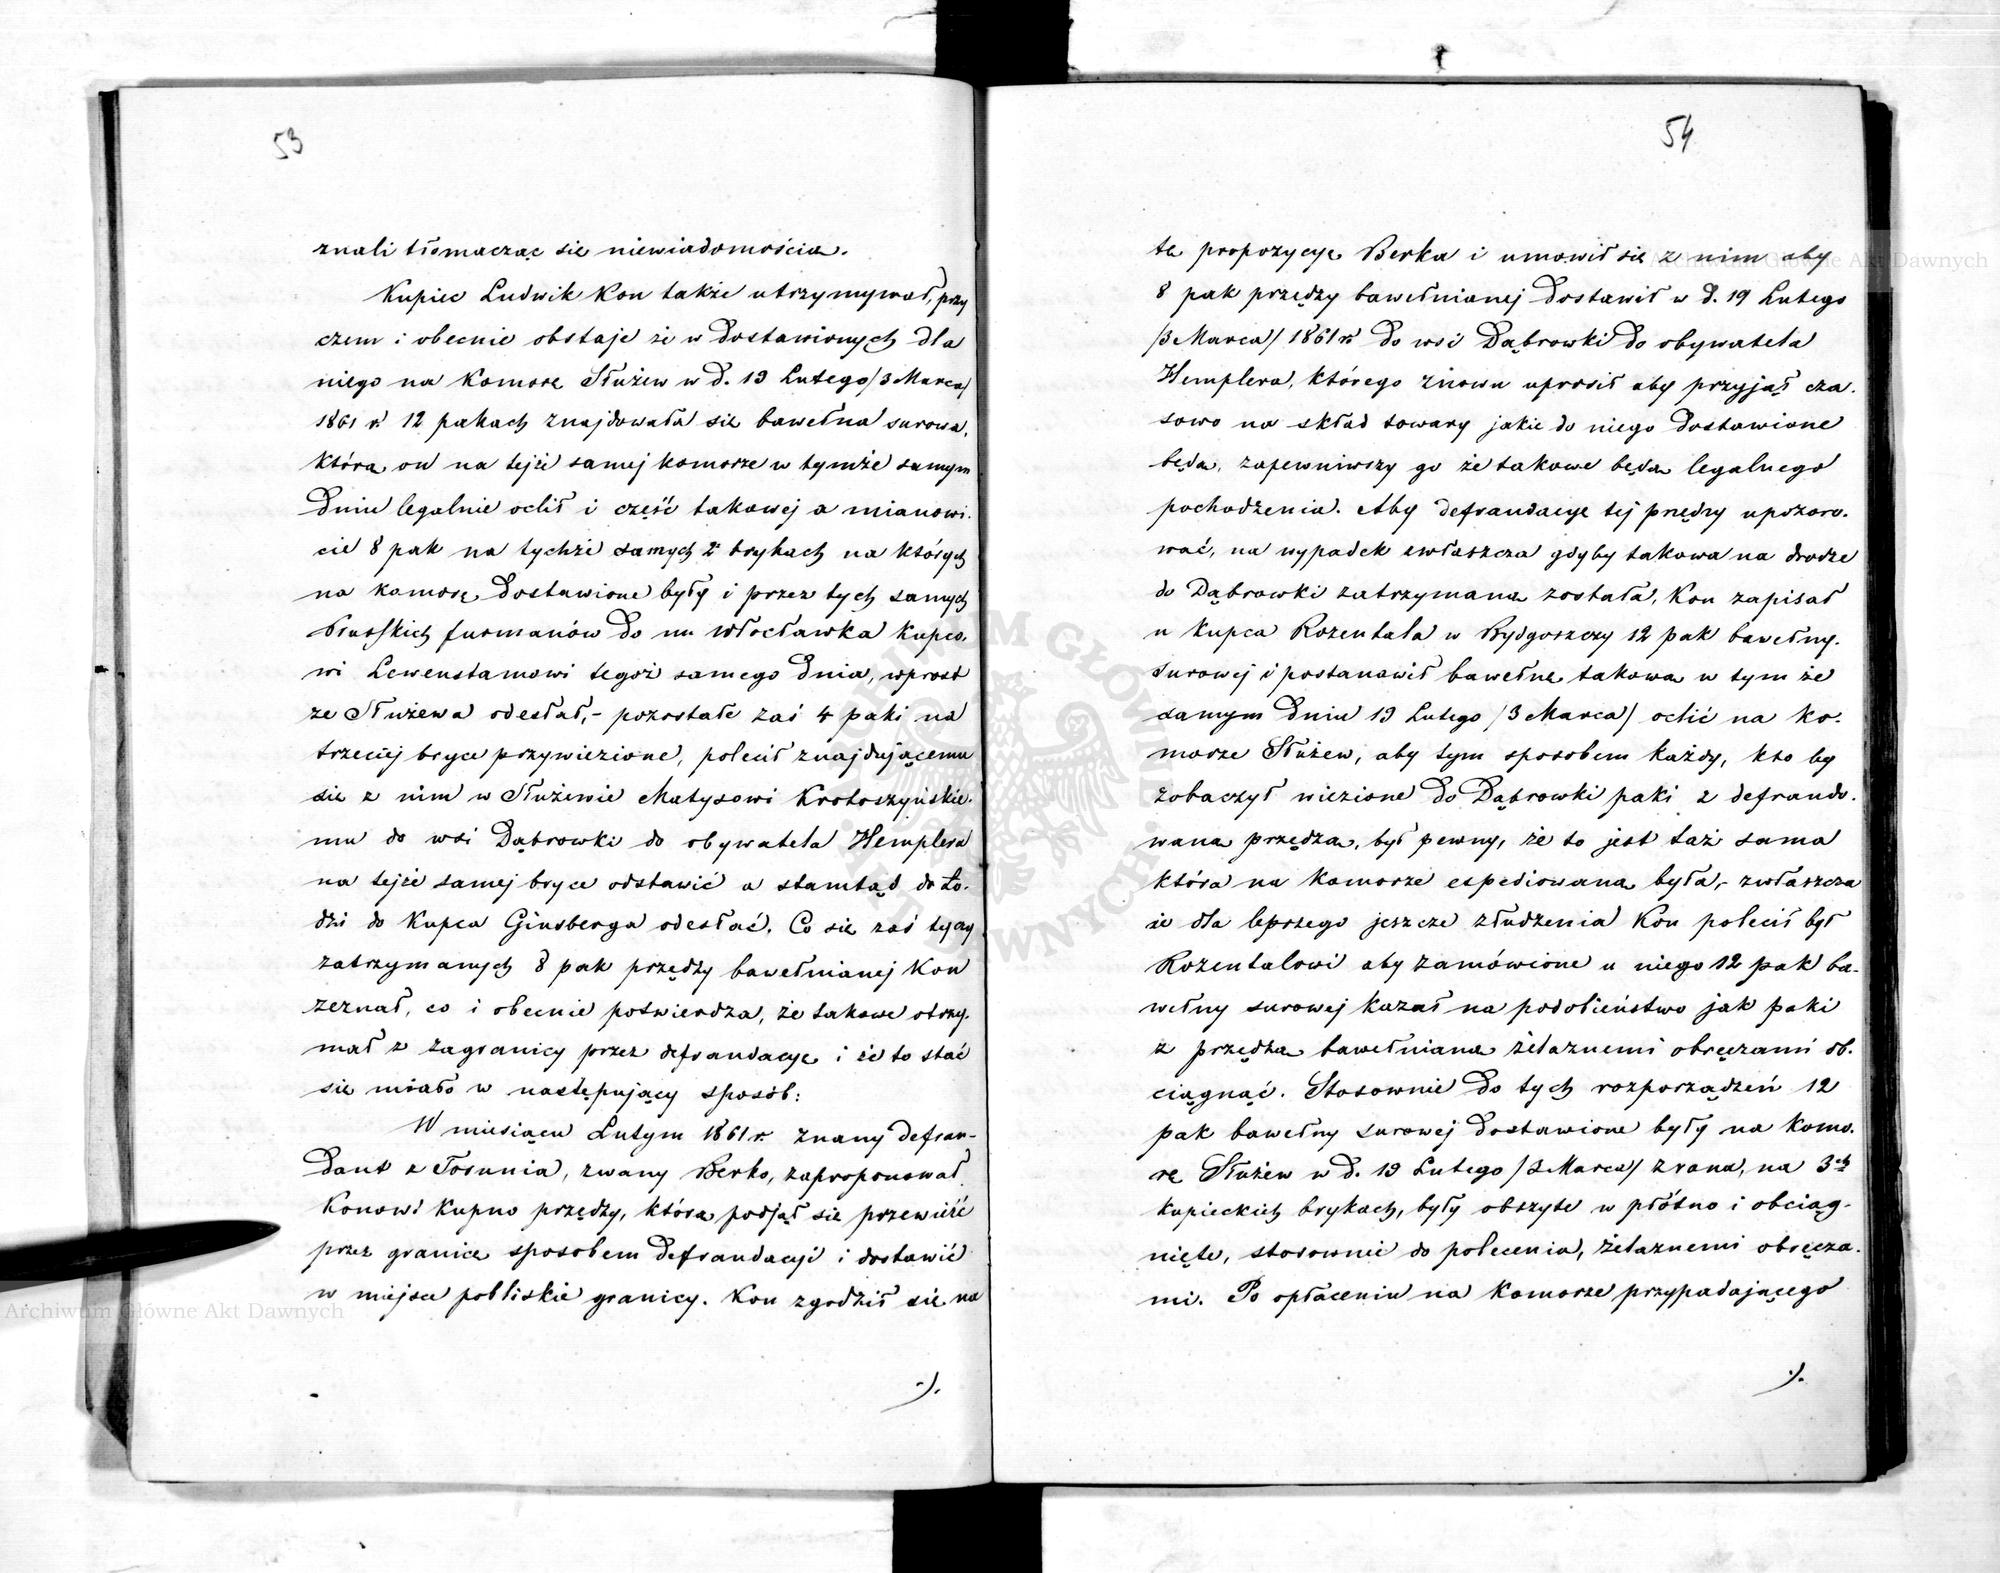 53
znali tłomacząc się niewiadomością.
Kupiec Ludwik Kon także utrzymywał, przy
czem i obecnie obstaje że w dostawionych dla
niego na Komorę Służew w d. 19 Lutego /3 Marca/
1861 r. 12 pakach znajdowała się bawełna surowa,
którą on na tejże samej komorze w tymże samym
dniu legalnie oclił i część takowej a mianowi-
cie 8 pak na tychże samych 2 brykach na których
na komorę dostawione były i przez tych samych
Pruskich furmanów do m. Włocławka kupco-
wi Lewenstamowi tegoż samego dnia, wprost
ze Służewa odesłał,- pozostałe zaś 4 paki na
trzeciej bryce przywiezione, polecił znajdującemu
się z nim w Służewie Matysowi Krotoszyńskie-
mu do wsi Dąbrowki do obywatela Hemplera
na tejże samej bryce odstawić a stamtąd do Ło-
dzi do Kupca Ginsberga odesłać. Co się zaś tyczy
zatrzymanych 8 pak przędzy bawełnianej Kon
zeznał, co i obecnie potwierdza, że takowe otrzy-
mał z zagranicy przez defraudacyę i że to stać
się miało w następujący sposób:
W miesiącu Lutym 1861 r. znany defrau-
dant z Torunia, zwany Berko, zaproponował
Konowi kupno przędzy, którą podjął się przewieźć
przez granicę sposobem defraudacyi i dostawić
w miejsce pobliskie granicy. Kon zgodził się na
./.
54
tę propozycyę Berka i umówił się z nim aby
8 pak przędzy bawełnianej dostawił w d. 19 Lutego
/3 Marca/ 1861 r. do wsi Dąbrowki do obywatela
Hemplera, którego znowu uprosił aby przyjął cza-
sowo na skład towary jakie do niego dostawione
będą, zapewniwszy go że takowe będą legalnego
pochodzenia. Aby defraudacyę tej przędzy upozoro-
wać, na wypadek zwłaszcza gdyby takowa na drodze
do Dąbrowki zatrzymaną została, Kon zapisał
u kupca Rozentala w Bydgoszczy 12 pak bawełny
surowej i postanowił bawełnę takową w tym że
samym dniu 19 Lutego /3 Marca/ oclić na Ko-
morze Służew, aby tym sposobem każdy, kto by
zobaczył wiezione do Dąbrowki paki z defraudo-
waną przędzą, był pewny, że to jest taż sama
która na Komorze espediowaną była,- zwłaszcza
że dla lepszego jeszcze złudzenia Kon polecił był
Rozentalowi aby zamówione u niego 12 pak ba-
wełny surowej kazał na podobieństwo jak paki
z przędzą bawełnianą żelaznemi obręczami ob-
ciągnąć. Stosownie do tych rozporządzeń 12
pak bawełny surowej dostawione były na Komo-
rę Służew w d. 19 Lutego /3 Marca/ z rana, na 3ch
kupieckich brykach, były obszyte w płótno i obciąg-
nięte, stosownie do polecenia, żelaznemi obręcza-
mi. Po opłaceniu na Komorze przypadającego
./.
Archiwum Główne Akt Dawnych
Archiwum Główne Akt Dawnych
ARCHIWUM GŁÓWNE AKT DAWNYCH